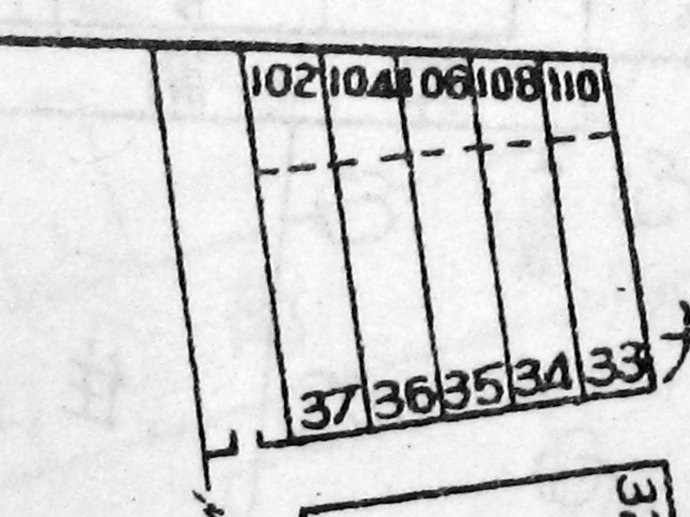 102 104 106 108 110
37 36 35 34 33